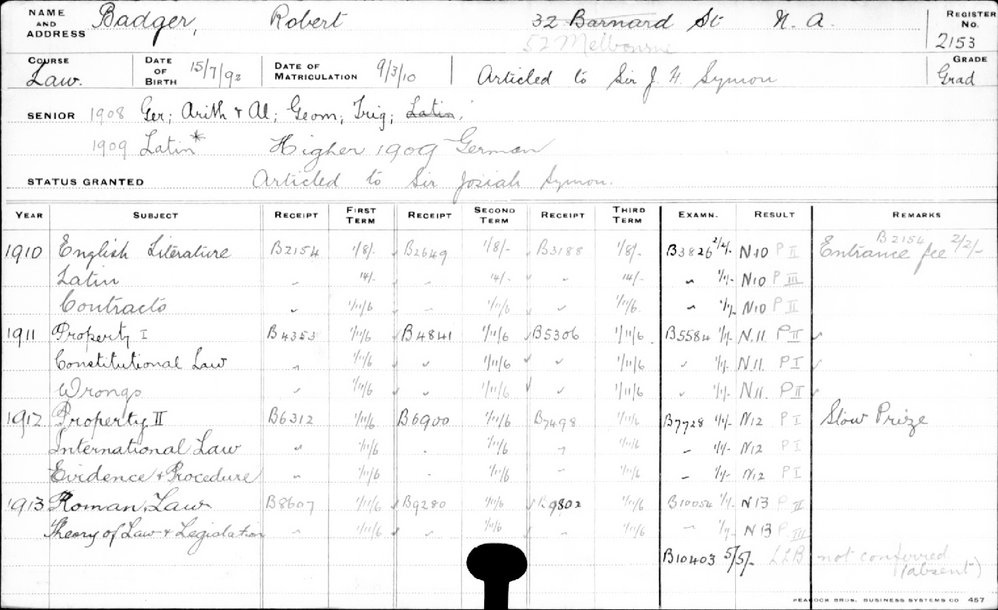 NAME AND ADDRESS Badger, Robert 32 Barnard St N. A. REGISTER No. 2153
52 Melbourne
COURSE Law. DATE OF BIRTH 15/7/92 DATE OF MATRICULATION 9/3/10 Articled to Sir J. H. Symon GRADE Grad
SENIOR 1908 Ger; Arith & Al; Geom; Trig; Latin;
1909 Latin* Higher 1909 German
STATUS GRANTED Articled to Sir Josiah Symon.
YEAR SUBJECT RECEIPT FIRST TERM RECEIPT SECOND TERM RECEIPT THIRD TERM EXAMN. RESULT REMARKS
1910 English Literature B2154 1/8/- B2649 1/8/- B3188 1/8/- B3826 2/2/- N10 P II Entrance fee B2154 2/2/-
Latin " 14/- " 14/- " 14/- " 1/1/- N10 P III
Contracts " 1/11/6 " 1/11/6 " 1/11/6 " 1/1/- N10 P II
1911 Property I B4353 1/11/6 B4841 1/11/6 B5306 1/11/6 B5584 1/1/- N.11 P II
Constitutional Law " 1/11/6 " 1/11/6 " 1/11/6 " 1/1/- N.11 P I
Wrongs " 1/11/6 " 1/11/6 " 1/11/6 " 1/1/- N.11. P II
1912 Property II B6312 1/11/6 B6900 1/11/6 B7498 1/11/6 B7728 1/1/- N12 P I Stow Prize
International Law " 1/11/6 " 1/11/6 " 1/11/6 " 1/1/- N12 P I
Evidence & Procedure " 1/11/6 " 1/11/6 " 1/11/6 " 1/1/- N12 P I
1913 Roman Law B8607 1/11/6 B9280 1/11/6 B9802 1/11/6 B10054 1/1- N13 P II
Theory of Law & Legislation " 1/11/6 " 1/11/6 " 1/11/6 " 1/1/- N13 P III
B10403 5/5/- LLB not conferred
(absent)
PEACOCK BROS. BUSINESS SYSTEMS CO 457